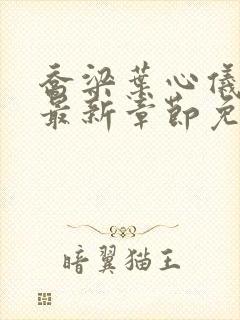 乔梁叶心仪
最新章节免
暗翼猫王